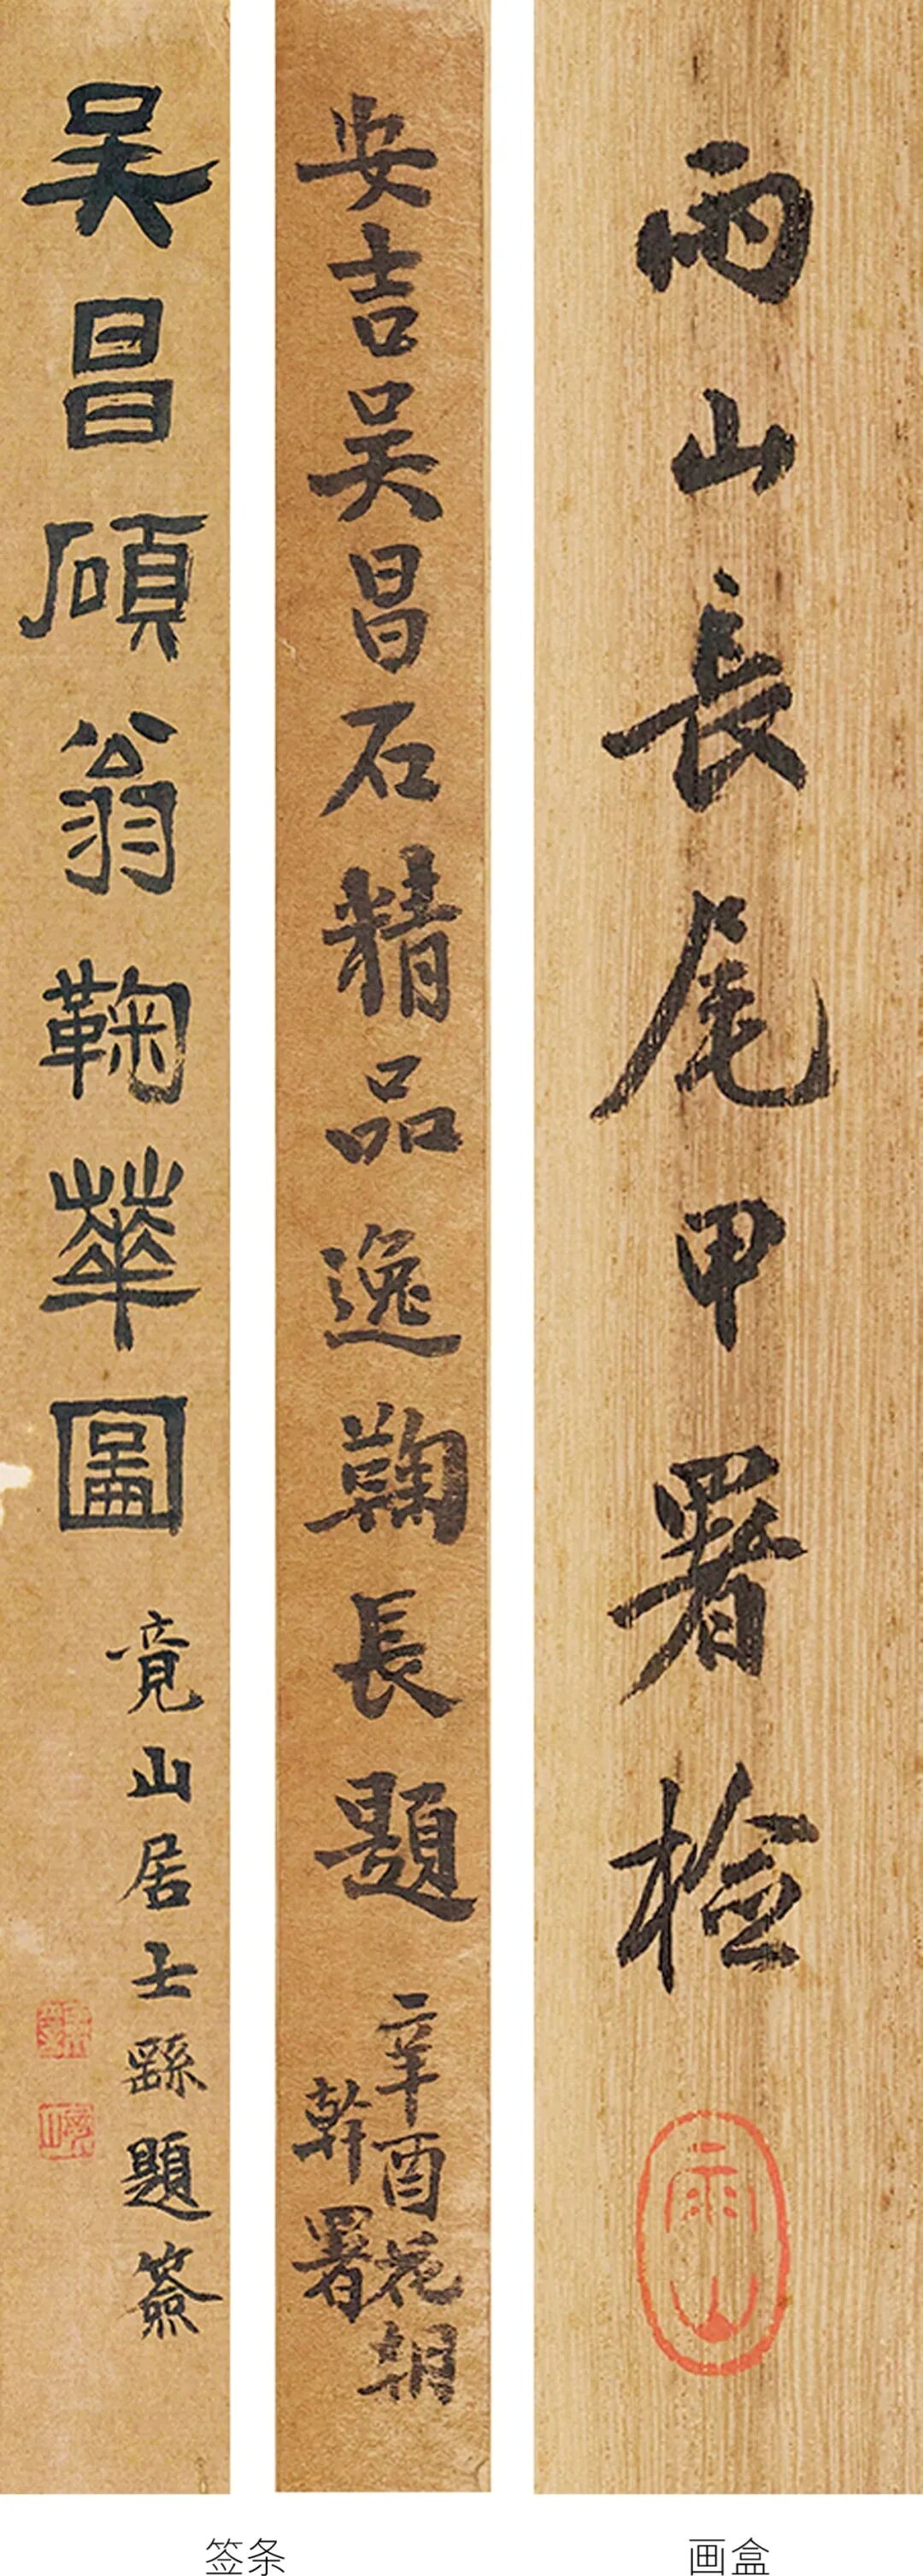 吴昌碩翁鞠華圖
竟山居士繇題簽
安吉吴昌石精品逸蘜長題
辛酉花朝
幹署
雨山長尾甲署檢
雨山
签条
画盒